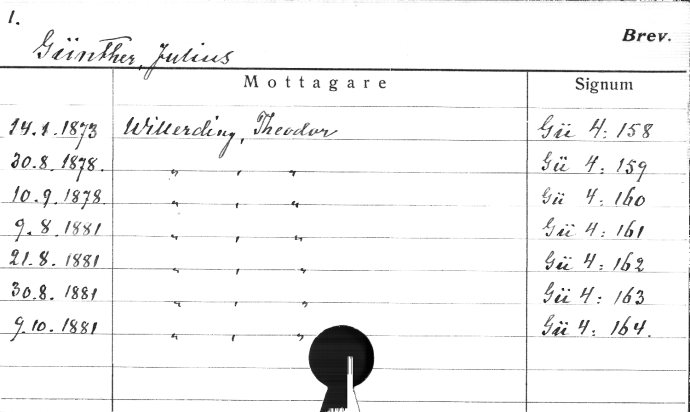 1.
Brev.
Günther, Julius
Mottagare Signum
14.1.1873 Willerding, Theodor Gü 4:158
30.8.1878. „ , „ Gü 4:159
10.9.1878 „ , „ Gü 4:160
9.8.1881 „ , „ Gü 4:161
21.8.1881 „ , „ Gü 4:162
30.8.1881 „ , „ Gü 4:163
9.10.1881 „ , „ Gü 4:164.